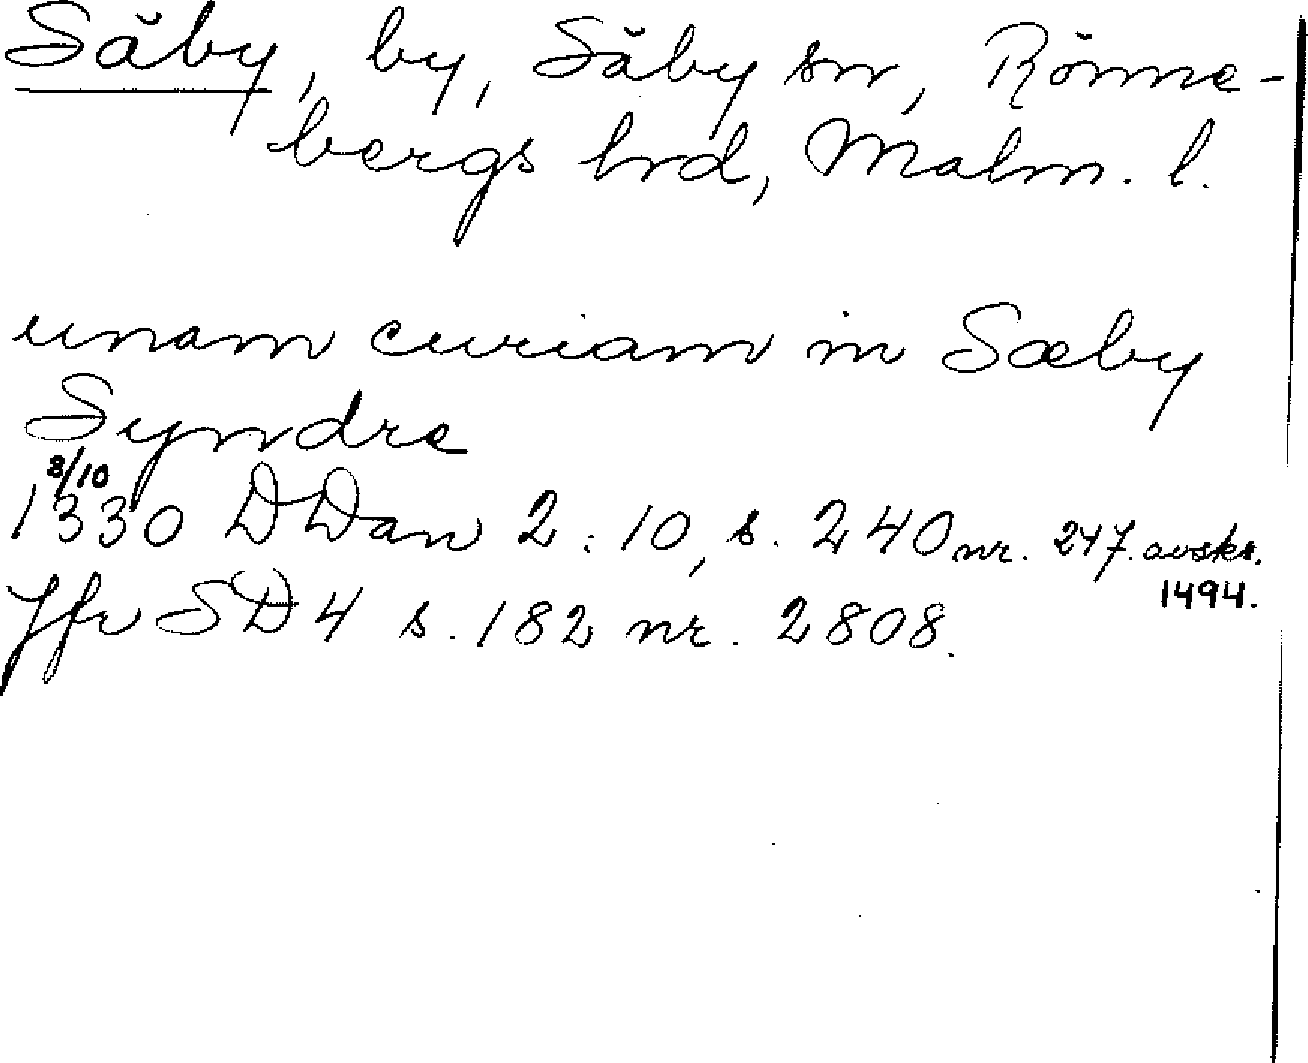 Säby, by, Säby sn, Rönne-
bergs hrd, Malm. l.
unam curiam in Sæby
Syndre
3/10
1330 DDan 2:10, s. 240 nr. 247. avskr.
1494.
Jfr SD 4 s. 182 nr. 2808.